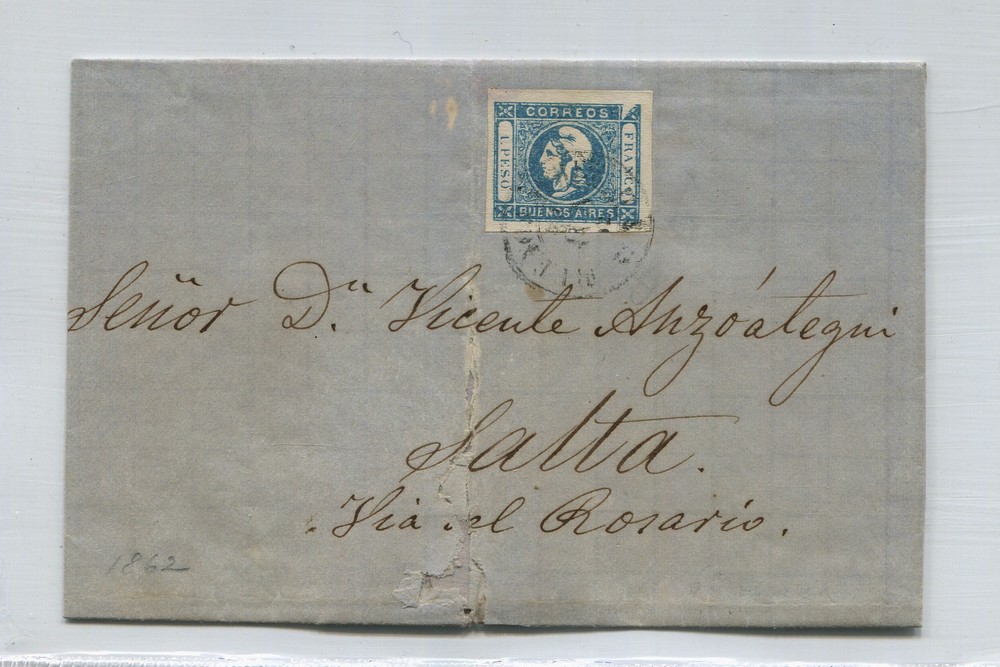 CORREOS
1 PESO
FRANCO
BUENOS AIRES
Señor Dn. Vicente Anzóategui
Salta.
Via del Rosario.
1862